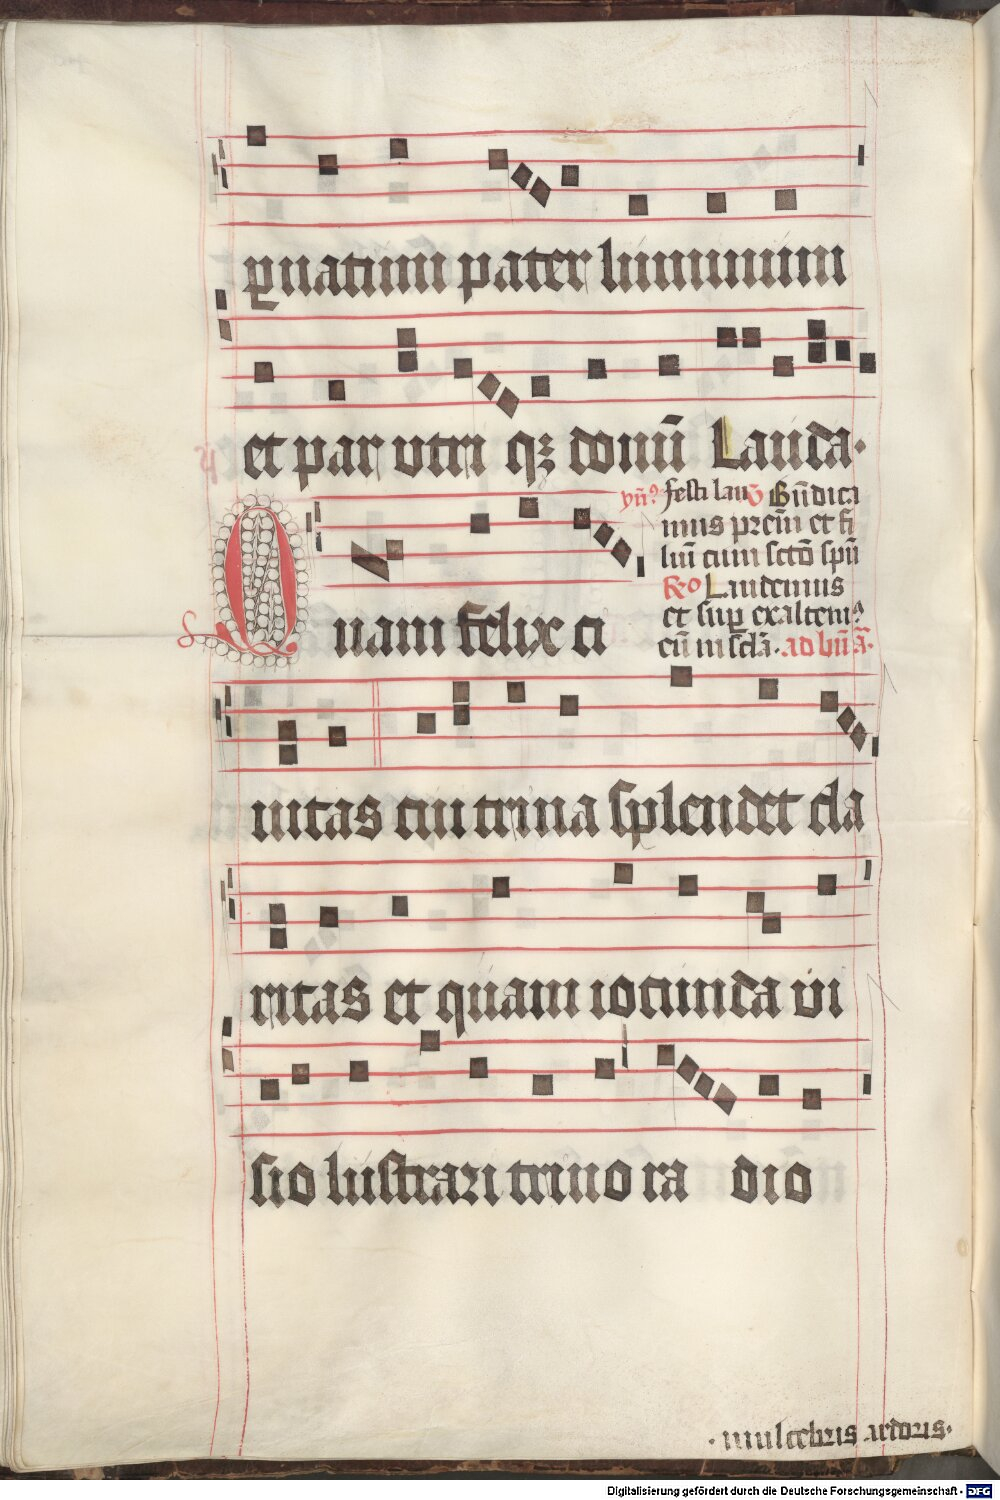 quatinus pater luminum
et par utriqz donū Lauda.
yñ⁹ festi laud Bn̄dica
mus prem̄ et fi
liū cum sctō spū
Reo Laudemus
et sup exaltem⁹
eū in sc̄la. ad bn̄.a.
Quam felix ci
uitas cui trina splendet cla
ritas et quam iocunda vi
sio lustrari trino radio
. muliebris ardoris.
Digitalisierung gefördert durch die Deutsche Forschungsgemeinschaft - DFG